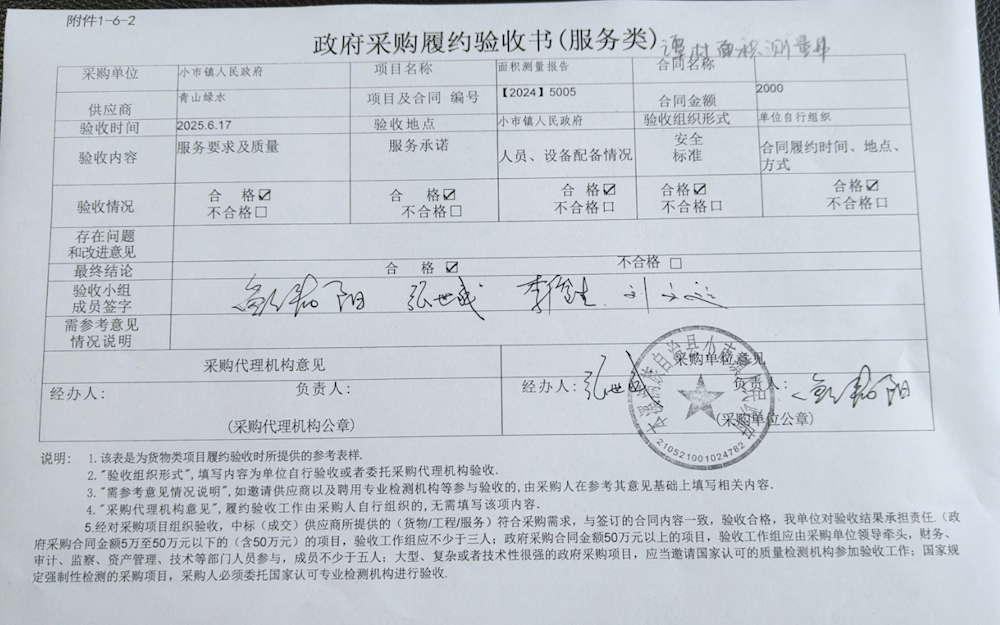 附件1-6-2
政府采购履约验收书(服务类)
面积测量
采购单位 小市镇人民政府 项目名称 面积测量报告 合同名称
供应商 青山绿水 项目及合同 编号 【2024】5005 合同金额 2000
验收时间 2025.6.17 验收地点 小市镇人民政府 验收组织形式 单位自行组织
验收内容 服务要求及质量 服务承诺 人员、设备配备情况 安全标准 合同履约时间、地点、方式
验收情况 合 格☑ 合 格☑ 合 格☑ 合格☑ 合格☑
不合格□ 不合格□ 不合格口 不合格口 不合格□
存在问题
和改进意见
最终结论 合 格 ☑ 不合格 □
验收小组
成员签字 张世成
需参考意见
情况说明
采购代理机构意见 采购单位意见
经办人: 负责人: 经办人: 张世成 负责人:
(采购代理机构公章) (采购单位公章)
210521001024782
说明: 1.该表是为货物类项目履约验收时所提供的参考表样.
2."验收组织形式",填写内容为单位自行验收或者委托采购代理机构验收.
3."需参考意见情况说明",如邀请供应商以及聘用专业检测机构等参与验收的,由采购人在参考其意见基础上填写相关内容.
4."采购代理机构意见",履约验收工作由采购人自行组织的,无需填写该项内容.
5.经对采购项目组织验收，中标（成交）供应商所提供的（货物/工程/服务）符合采购需求，与签订的合同内容一致，验收合格，我单位对验收结果承担责任.（政
府采购合同金额5万至50万元以下的（含50万元）的项目，验收工作组应不少于三人；政府采购合同金额50万元以上的项目，验收工作组应由采购单位领导牵头，财务、
审计、监察、资产管理、技术等部门人员参与，成员不少于五人；大型、复杂或者技术性很强的政府采购项目，应当邀请国家认可的质量检测机构参加验收工作；国家规
定强制性检测的采购项目，采购人必须委托国家认可专业检测机构进行验收.